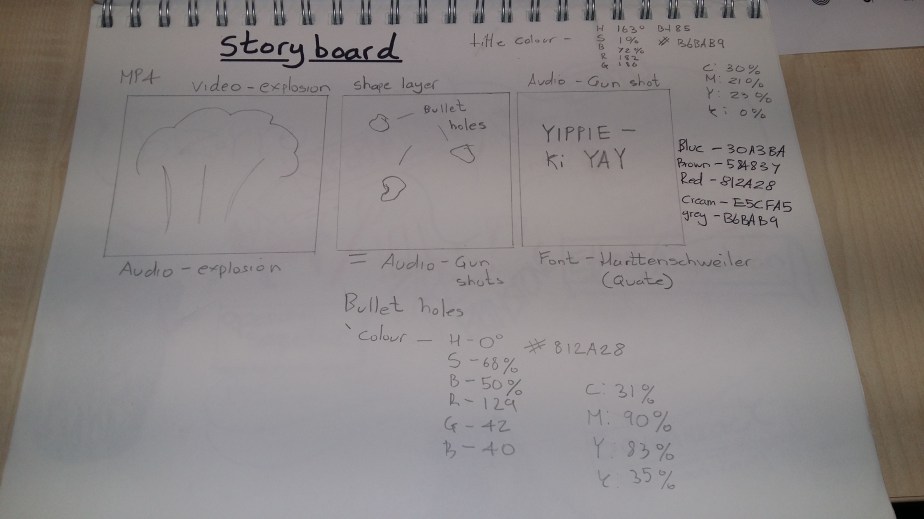 Storyboard
title colour -
H 163° B+185
S 1%
B 72%
R 182
G 186
# B6BAB9
C: 30%
M: 21%
Y: 25%
K: 0%
MP4
Video - explosion
shape layer
Audio - Gun shot
Bullet
holes
YIPPIE -
Ki YAY
Blue - 30A3BA
Brown - 584837
Red - 812A28
Cream - E5CFA5
grey - B6BAB9
Audio - explosion
= Audio - Gun
shots
Font - Harttenschweiler
(Quate)
Bullet holes
colour - H - 0° # 812A28
S - 68%
B - 50%
R - 129
G - 42
B - 40
C: 31%
M: 90%
Y: 83%
K: 35%